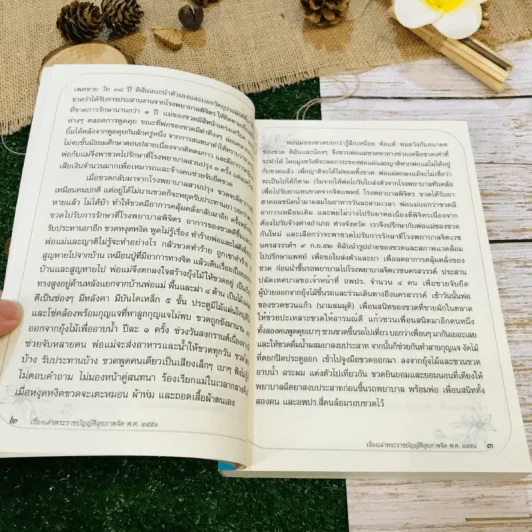 เพศชาย วัย ๓๔ ปี ดิฉันแนะนำตัวเองและบอกวัตถุประสงค์
ขวดว่าได้รับการประสานงานจากโรงพยาบาลพิจิตร
ที่ขาดการรักษานานกว่า ๑ ปี แม่ของขวดมีสีหน้า
ต่างๆ ตลอดการพูดคุย ขณะที่พ่อของขวด
ยิ้มได้หลังจากพูดคุยกันสักครู่หนึ่ง จากการสนทนาทำให้ทราบว่า
ไม่จบชั้นมัธยมศึกษาตอนปลายเนื่องจากติดดมกาว
พ่อกับแม่จึงพาขวดไปรักษาที่โรงพยาบาลสวนปรุง
เสียเงินจำนวนมากเพื่อเหมารถและจ้างคนช่วยจับขวด
เมื่อขวดกลับมาจากโรงพยาบาลสวนปรุง
เหมือนคนปกติ แต่อยู่ได้ไม่นานขวดก็จะหยุดรับประทานยา
ทายแล้ว ไม่ได้บ้า ทำให้ขวดมีอาการคุ้มคลั่งกลับมาอีก
ขวดไปรับการรักษาที่โรงพยาบาลพิจิตร อาการของขวด
รับประทานยาอีก ขวดหงุดหงิด พูดไม่รู้เรื่อง ทำร้ายพ่อและ
พ่อแม่และญาติไม่รู้จะทำอย่างไร กลัวขวดทำร้าย ถูกเขาทำร้าย
สูญหายไปจากบ้าน เหมือนปู่ที่มีอาการทางจิต แล้วเดินเรื่อยเปื่อย
บ้านและสูญหายไป พ่อแม่จึงตกลงใจสร้างยุ้งไม้ให้ขวดอยู่
ทรงสูงอยู่ด้านหลังแยกจากบ้านพ่อแม่ พื้นและฝา ๔ ด้าน เป็นไม้
ตีเป็นช่องๆ มีหลังคา มีบันไดเหล็ก ๕ ขั้น ประตูมีไม้แผ่นใหญ่
และโซ่คล้องพร้อมกุญแจที่หาลูกกุญแจไม่พบ ขวดถูกขัง
ออกจากยุ้งไม้เพื่ออาบน้ำ ปีละ ๑ ครั้ง ช่วงวันสงกรานต์เนื่องจาก
ช่วยจับหลายคน พ่อแม่จะส่งอาหารและน้ำให้ขวดทุกวัน
บ้าง รับประทานบ้าง ขวดพูดคนเดียวเป็นเสียงเล็กๆ เบาๆ
ไม่ตอบคำถาม ไม่มองหน้าคู่สนทนา ร้องเรียกแม่ในเวลากลางคืน
เมื่อหงุดหงิดขวดจะเตะหมอน ผ้าห่ม และถอดเสื้อผ้าตนเอง
๒ เรื่องเล่าพระราชบัญญัติสุขภาพจิต พ.ศ. ๒๕๕๑
พ่อแม่ของขวดบอกว่ารู้สึกเหนื่อย ท้อแท้ หมดหวังกับอนาคต
ของขวด ดิฉันและน้องๆ จึงชวนพ่อแม่ขวดหาทางช่วยเหลือขวดเท่าที่
จะทำได้ โดยมุ่งหวังที่จะลดภาระของพ่อแม่และญาติ
กับขวดแล้ว เพื่อญาติจะได้ไม่ทอดทิ้งขวด พ่อแม่ตกลงแม้จะไม่เชื่อว่า
จะเป็นไปได้ก็ตาม เริ่มจากให้พ่อไปรับใบส่งตัวจากโรงพยาบาลทับคล้อ
เพื่อไปรับยาแทนขวดจากจิตแพทย์ โรงพยาบาลพิจิตร ขวดได้รับยา
ฮาลดอลชนิดน้ำผสมในอาหารวันละสามเวลา พ่อแม่บอกว่าขวดมี
อาการเหมือนเดิม และพ่อไม่ว่างไปรับยาต่อเนื่องที่พิจิตรเนื่องจาก
ต้องไปรับจ้างต่างอำเภอ ต่างจังหวัด เราจึงปรึกษากับพ่อแม่ของขวด
กันใหม่ และเลือกว่าจะพาขวดไปรับการรักษาที่โรงพยาบาลจิตเวช
นครสวรรค์ฯ ๙ ก.ย.๕๒ ดิฉันนำรูปถ่ายของขวดและสภาพแวดล้อม
ไปปรึกษาแพทย์ เพื่อขอใบส่งตัวและยา เพื่อลดอาการคุ้มคลั่งของ
ขวด ก่อนนำขึ้นรถยาบาลไปโรงพยาบาลจิตเวชนครสวรรค์ ประสาน
ปลัดเทศบาลขอเจ้าหน้าที่ อพปร. จำนวน ๔ คน เพื่อช่วยจับยึด
ผู้ป่วยออกจากยุ้งไม้ขึ้นรถและร่วมเดินทางถึงนครสวรรค์ เช้าวันนั้นพ่อ
ของขวดชวนแก้ว (นามสมมุติ) เพื่อนสนิทของขวดที่ขายผักในตลาด
ให้ช่วยปะเหลาะขวดให้อารมณ์ดี แก้วชวนเพื่อนสนิทมาอีกคนหนึ่ง
ทั้งสองคนพูดคุยเบาๆ ชวนขวดขึ้นรถไปเที่ยว บอกว่าเพื่อนๆ มากันเยอะเลย
และให้ขวดดื่มน้ำผสมยาสงบประสาท จากนั้นก็ช่วยกันทำลายกุญแจ งัดไม้
ที่ตอกปิดประตูออก เข้าไปจูงมือขวดออกมา ลงจากยุ้งไม้และชวนขวด
อาบน้ำ สระผม แต่งตัวไปเที่ยวกัน ขวดยินยอมและยอมนอนที่เตียงให้
พยาบาลฉีดยาสงบประสาทก่อนขึ้นรถยาบาล พร้อมพ่อ เพื่อนสนิททั้ง
สองคน และอพปร.สี่คนล้อมรอบขวดไว้
เรื่องเล่าพระราชบัญญัติสุขภาพจิต พ.ศ. ๒๕๕๑ ๓